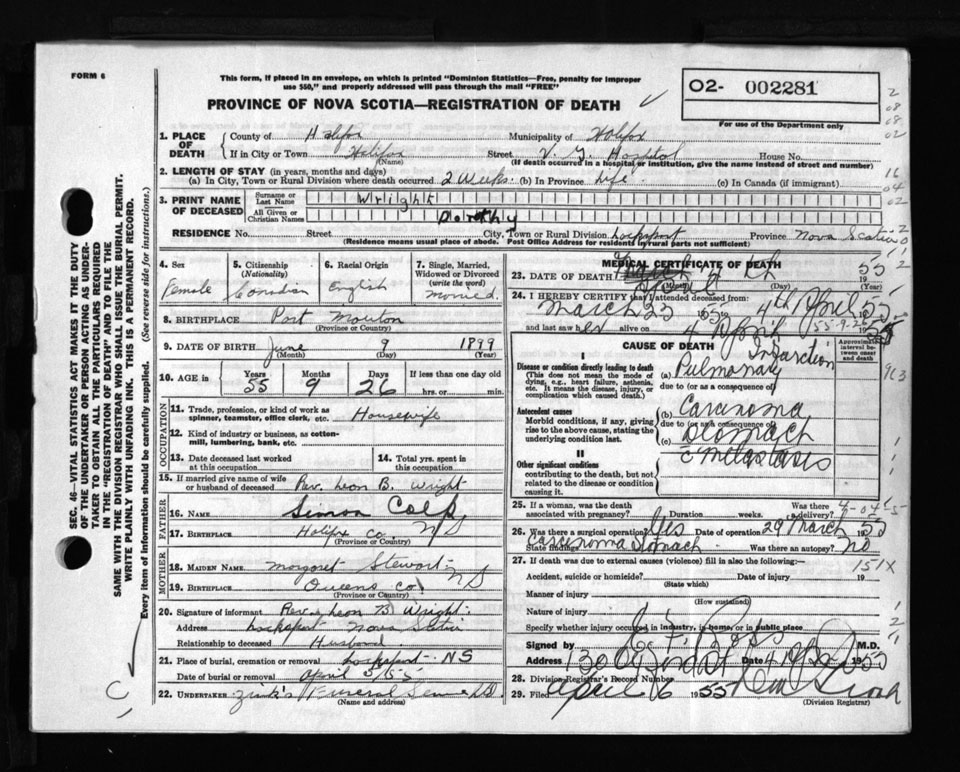 FORM 6
This form, if placed in an envelope, on which is printed "Dominion Statistics—Free, penalty for improper
use $50," and properly addressed will pass through the mail "FREE"
PROVINCE OF NOVA SCOTIA—REGISTRATION OF DEATH
O2- 002281
For use of the Department only
1. PLACE OF DEATH County of Halifax Municipality of Halifax
If in City or Town Halifax (Name) Street V. G. Hospital House No.
(If death occurred in a hospital or institution, give the name instead of street and number)
2. LENGTH OF STAY (in years, months and days)
(a) In City, Town or Rural Division where death occurred 2 Weeks. (b) In Province Life. (c) In Canada (if immigrant)
3. PRINT NAME OF DECEASED Surname or Last Name Wright
All Given or Christian Names Dorothy
RESIDENCE No. Street City, Town or Rural Division Lockeport Province Nova Scotia
(Residence means usual place of abode. Post Office Address for residents in rural parts not sufficient)
4. Sex Female
5. Citizenship (Nationality) Canadian
6. Racial Origin English
7. Single, Married, Widowed or Divorced (write the word) Married.
8. BIRTHPLACE Port Mouton
(Province or Country)
9. DATE OF BIRTH June 9 1899
(Month) (Day) (Year)
10. AGE in Years 55 Months 9 Days 26 If less than one day old hrs. or min.
OCCUPATION
11. Trade, profession or kind of work as spinner, teamster, office clerk, etc. Housewife
12. Kind of industry or business, as cotton-mill, lumbering, bank, etc.
13. Date deceased last worked at this occupation
14. Total yrs. spent in this occupation
15. If married give name of wife or husband of deceased Rev. Leon B. Wright
FATHER
16. NAME Simon Colp
17. BIRTHPLACE Halifax Co. NS
(Province or Country)
MOTHER
18. MAIDEN NAME Margaret Stewart
19. BIRTHPLACE Queens Co. NS
(Province or Country)
20. Signature of informant Rev. Leon B Wright
Address Lockeport Nova Scotia
Relationship to deceased Husband
21. Place of burial, cremation or removal Lockeport NS
Date of burial or removal April 5/55
22. UNDERTAKER Zink's Funeral
(Name and address)
MEDICAL CERTIFICATE OF DEATH
23. DATE OF DEATH April 4th 1955
(Month) (Day) (Year)
24. I HEREBY CERTIFY that I attended deceased from:
March 23 1955 to 4th April 1955
and last saw her alive on 4 April 1955
55-9-26
CAUSE OF DEATH
Approximate interval between onset and death
I
Disease or condition directly leading to death
(This does not mean the mode of dying, e.g., heart failure, asthenia, etc. It means the disease, injury, or complication which caused death.)
(a) Pulmonary Infarction
due to (or as a consequence of)
Antecedent causes
Morbid conditions, if any, giving rise to the above cause, stating the underlying condition last.
(b) Carcinoma
due to (or as a consequence of)
(c) Stomach
c metastasis
II
Other significant conditions
contributing to the death, but not related to the disease or condition causing it.
25. If a woman, was the death associated with pregnancy? Duration weeks. Was there a delivery?
26. Was there a surgical operation? Yes Date of operation 29 March 1955
State findings Carcinoma Stomach Was there an autopsy? No
27. If death was due to external causes (violence) fill in also the following:—
151X
Accident, suicide or homicide? Date of injury 19
(State which)
Manner of injury
(How sustained)
Nature of injury
Specify whether injury occurred in industry, in home, or in public place
Signed by M.D.
Address Date 1955
28. Division Registrar's Record Number
29. Filed April 6 1955
(Division Registrar)
SEC. 46—VITAL STATISTICS ACT MAKES IT THE DUTY
OF THE UNDERTAKER OR PERSON ACTING AS UNDER-
TAKER TO OBTAIN ALL THE PARTICULARS REQUIRED
IN THE "REGISTRATION OF DEATH" AND TO FILE THE
SAME WITH THE DIVISION REGISTRAR WHO SHALL ISSUE THE BURIAL PERMIT.
WRITE PLAINLY WITH UNFADING INK. THIS IS A PERMANENT RECORD.
Every item of information should be carefully supplied. (See reverse side for instructions.)